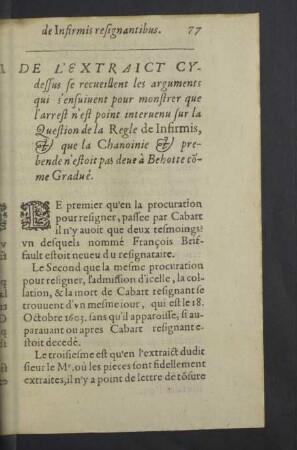 de Infirmis resignantibus. 77
DE L'EXTRAICT CY-
dessus se recueillent les arguments
qui s'ensuiuent pour monstrer que
l'arrest n'est point interuenu sur la
Question de la Regle de Infirmis,
& que la Chanoinie & pre-
bende n'estoit pas deuë à Behotte cõ-
me Gradué.
LE premier qu'en la procuration
pour resigner, passee par Cabart
il n'y auoit que deux tesmoings:
vn desquels nommé François Brif-
fault estoit neueu du resignataire.
Le Second que la mesme procuration
pour resigner, l'admission d'icelle, la col-
lation, & la mort de Cabart resignant se
trouuent d'vn mesme iour, qui est le 18.
Octobre 1603. sans qu'il apparoisse, si au-
parauant ou apres Cabart resignant e-
stoit decedé.
Le troisiesme est qu'en l'extraict dudit
sieur le Mr. où les pieces sont fidellement
extraites, il n'y a point de lettre de tõsure